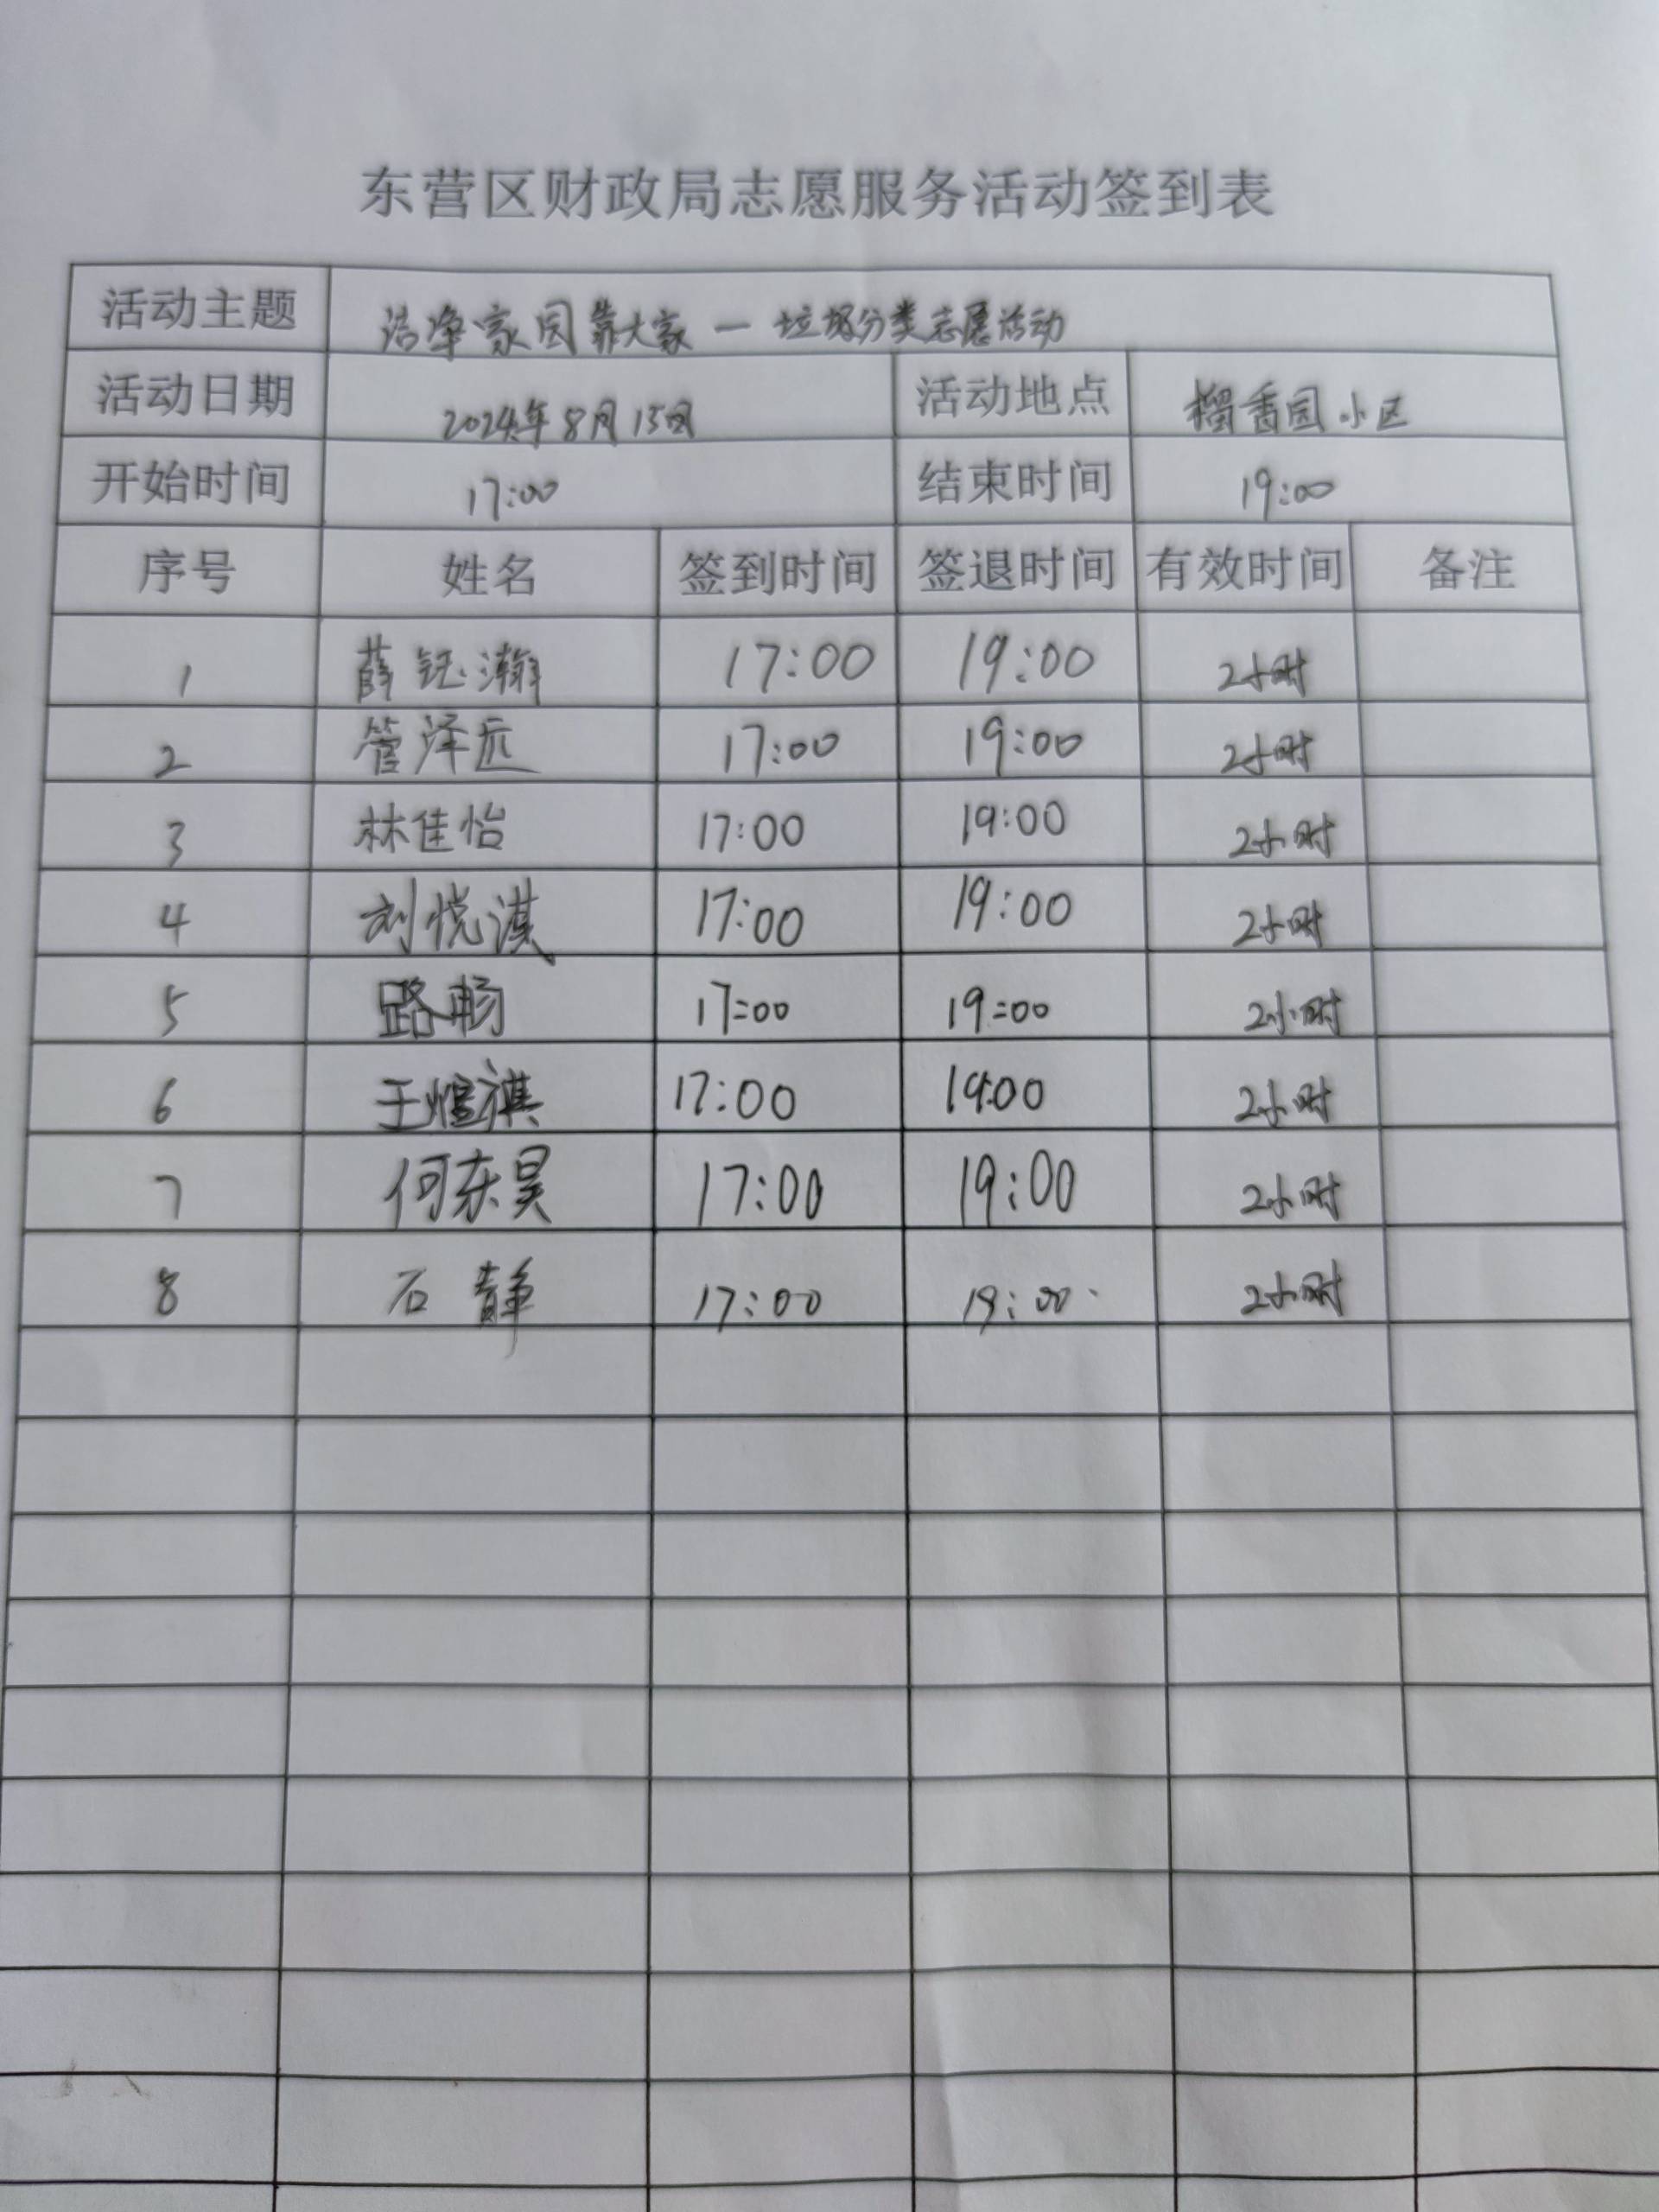 东营区财政局志愿服务活动签到表
活动主题 洁净家园靠大家一垃圾分类志愿活动
活动日期 2024年8月15日 活动地点 榴香园小区
开始时间 17:00 结束时间 19:00
序号 姓名 签到时间 签退时间 有效时间 备注
1 薛钰瀚 17:00 19:00 2小时
2 管泽远 17:00 19:00 2小时
3 林佳怡 17:00 19:00 2小时
4 刘悦淇 17:00 19:00 2小时
5 路畅 17:00 19:00 2小时
6 王煜祺 17:00 19:00 2小时
7 何东昊 17:00 19:00 2小时
8 石静 17:00 19:00 2小时